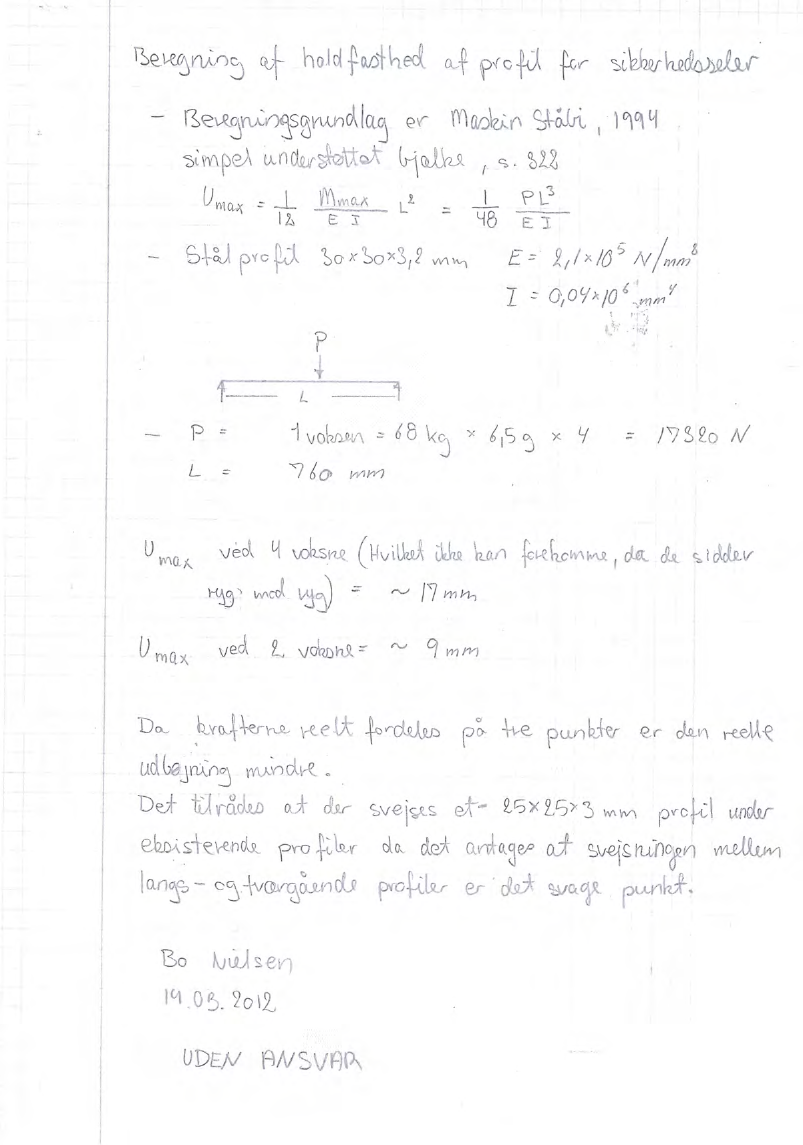 Beregning af holdfasthed af profil for sikkerhedsseler
- Beregningsgrundlag er Maskin Ståbi, 1994
simpel understøttet bjælke, s. 322
Umax = 1/12 Mmax/EI L² = 1/48 PL³/EI
- Stål profil 30×30×3,2 mm E = 2,1×10⁵ N/mm²
I = 0,04×10⁶ mm⁴
P
L
- P = 1 voksen = 68 kg × 6,5 g × 4 = 17320 N
L = 760 mm
Umax ved 4 voksne (Hvilket ikke kan forekomme, da de sidder
ryg mod ryg) = ~ 17 mm
Umax ved 2 voksne = ~ 9 mm
Da kræfterne reelt fordeles på tre punkter er den reelle
udbøjning mindre.
Det tilrådes at der svejses et 25×25×3 mm profil under
eksisterende profiler da det antages at svejsningen mellem
langs- og tværgående profiler er det svage punkt.
Bo Nielsen
19.03.2012
UDEN ANSVAR